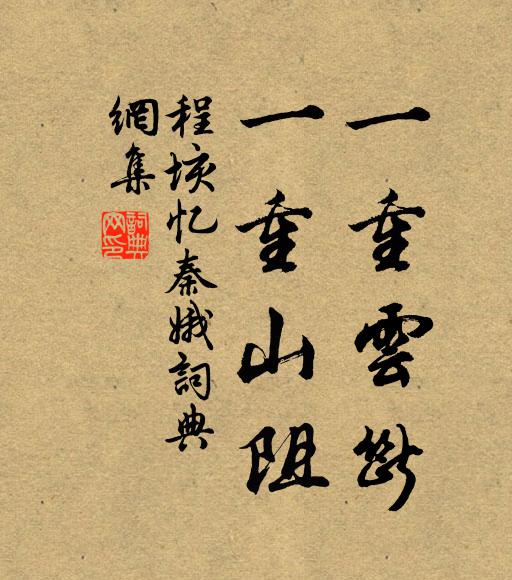 一重雲斷
一重山阻
程垓忆秦娥詞典
網集
詞典
网印